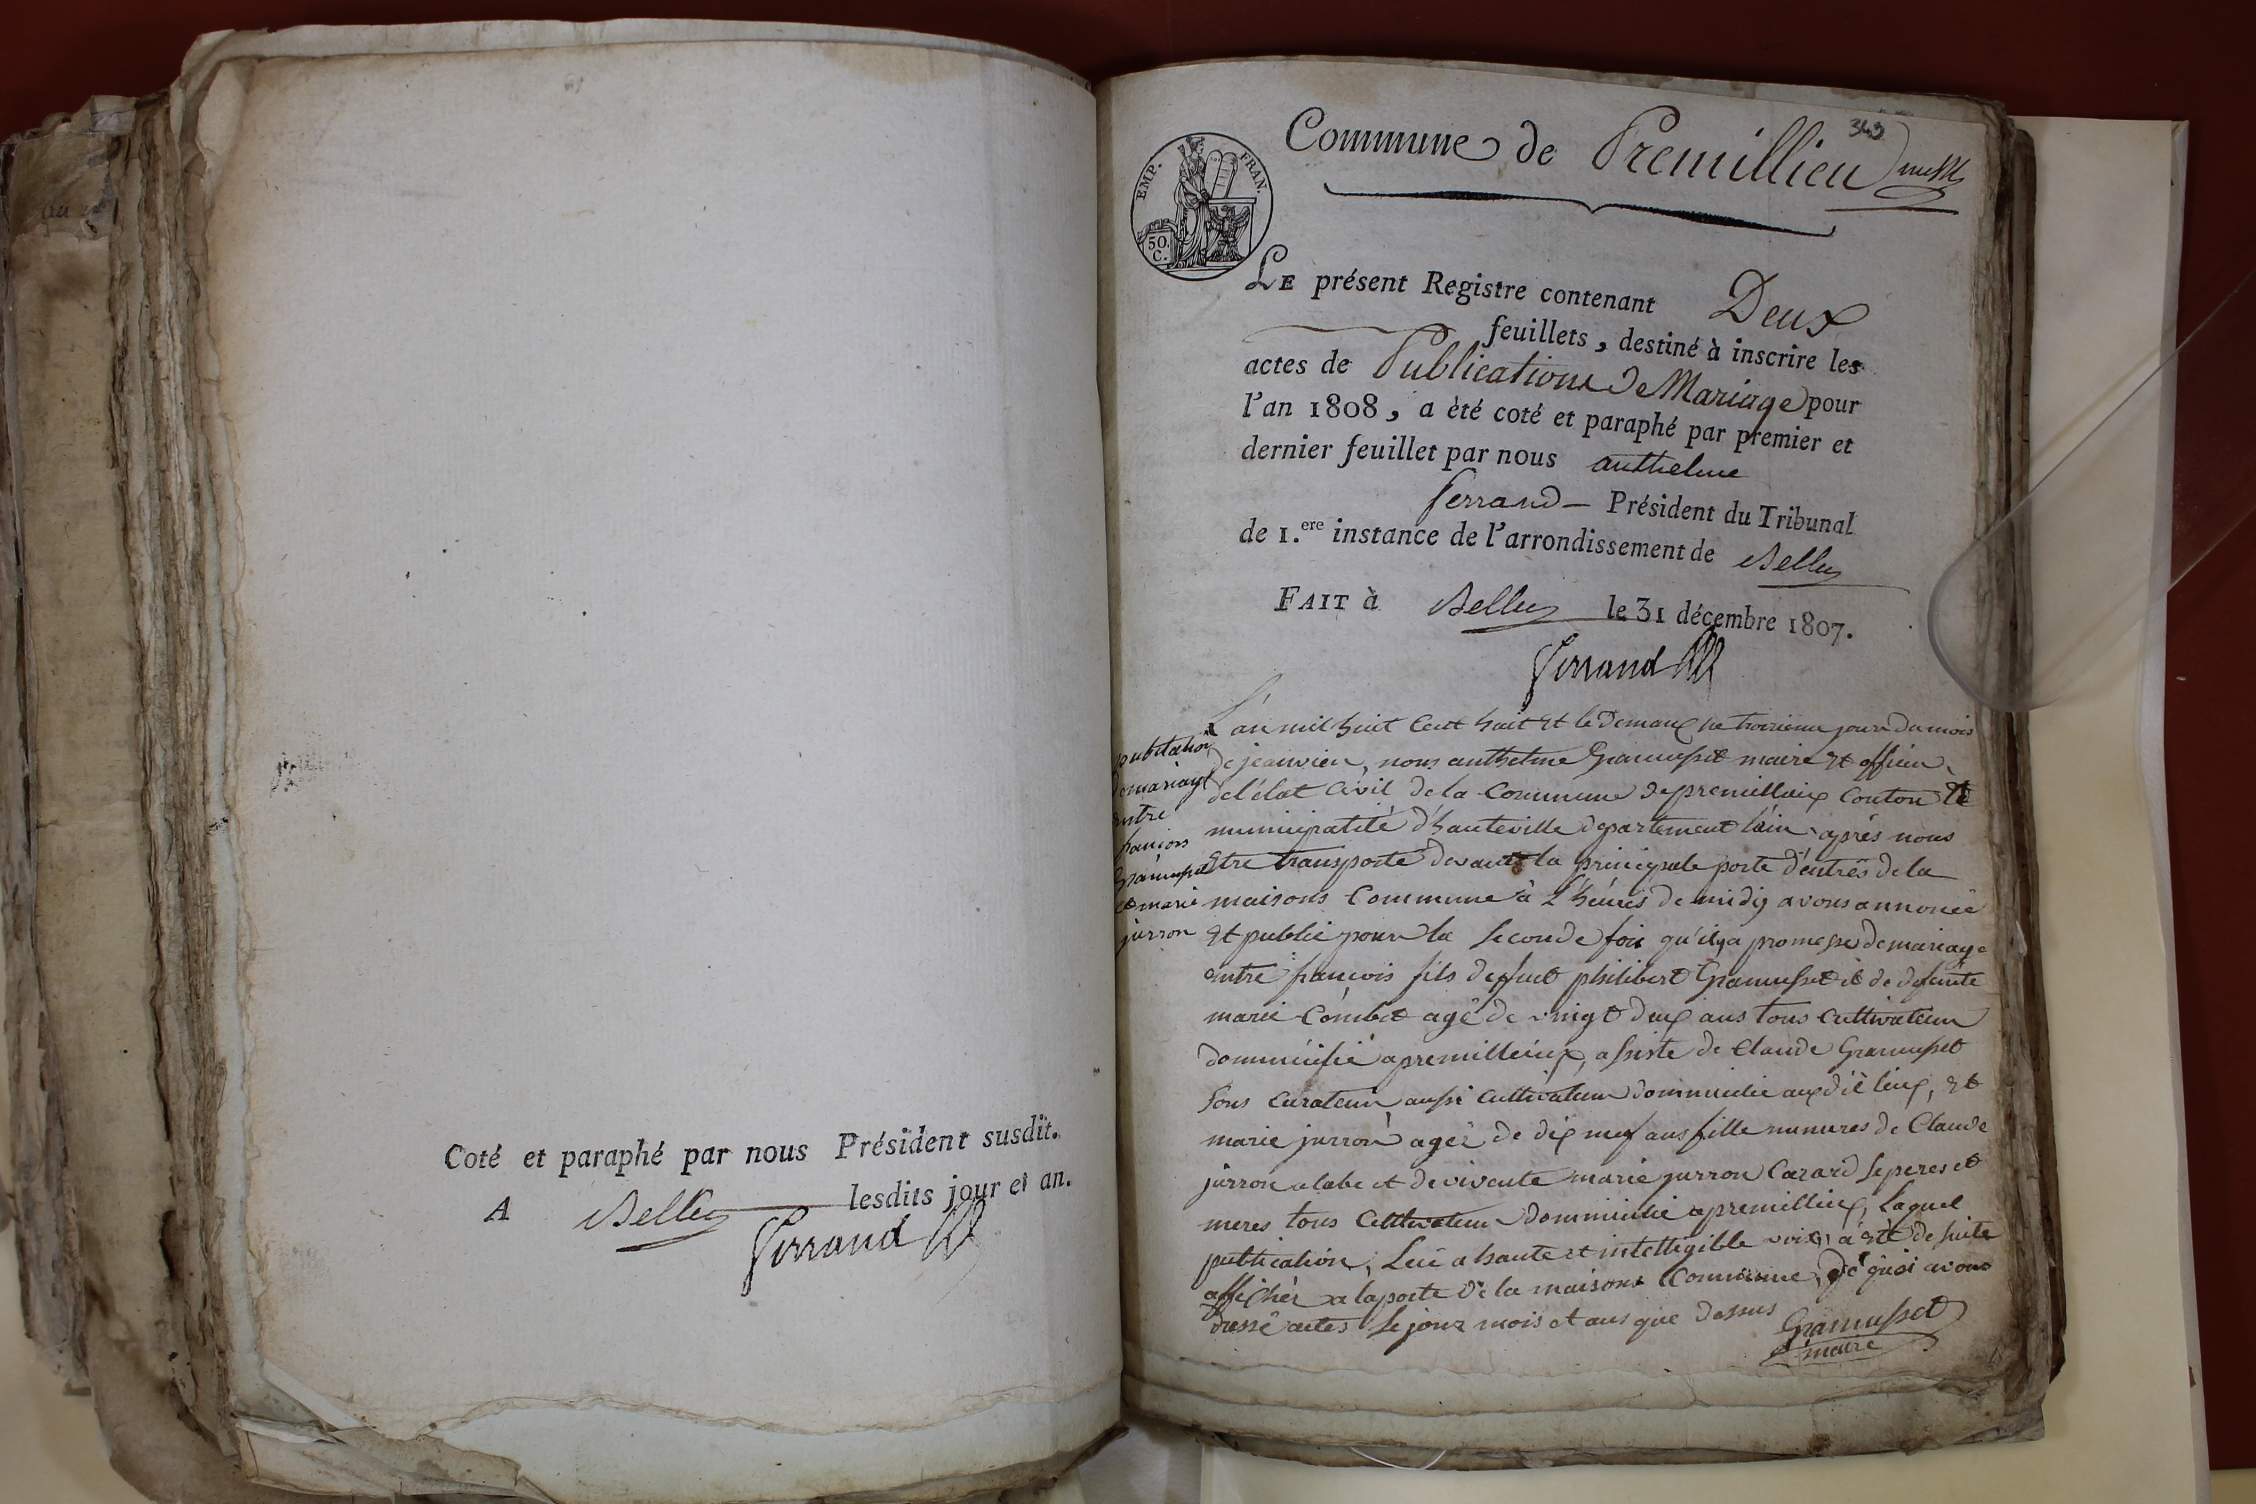 Coté et paraphé par nous Président susdit.
A Belley lesdits jour et an.
Ferrand
343
Commune de Premillieu
EMP. FRAN.
50.
C.
LE présent Registre contenant Deux
feuillets, destiné à inscrire les
actes de Publications de Mariage pour
l'an 1808, a èté coté et paraphé par premier et
dernier feuillet par nous anthelme
ferrand - Président du Tribunal
de 1.ere instance de l'arrondissement de Belley
FAIT à Belley le 31 décembre 1807.
Ferrand
publication
de mariage
entre
francois
Gramusset
et marie
jurron
L'an mil huit Cent huit et le Demanche troisieme jour du mois
de jeanvier, nous anthelme Gramusset maire et officier
de l'élat Civil de la Commune de premillieux Conton de
municipalité d'hauteville departement l'ain après nous
Etre transporté devant la principale porte d'entrés de la
maisons Commune à L'heures de midy avons annoncé
Et publié pour la seconde fois qu'il y a promesse de mariage
entre francois fils deffuct philibert Gramusset et de defunte
marie Combet agé de vingt deux ans tous Cultivateur
domminifié a premillieux, assiste de Claude Gramusset
sons Curateur aussi Cultivateur domminilie audit lieux, Et
marie jurron ageé de dix neuf ans fille mineures de Claude
jurron alabe et de vivente marie jurron Carard le peres et
meres tous Cultivateur domminilie a premillieux, Laquel
publication, Lue a haute et intelligible voix, a èté de suite
affichér a la porte de la maisons Commune, de quoi avons
dressé actes le jour mois et ans que dessus Gramusset
maire